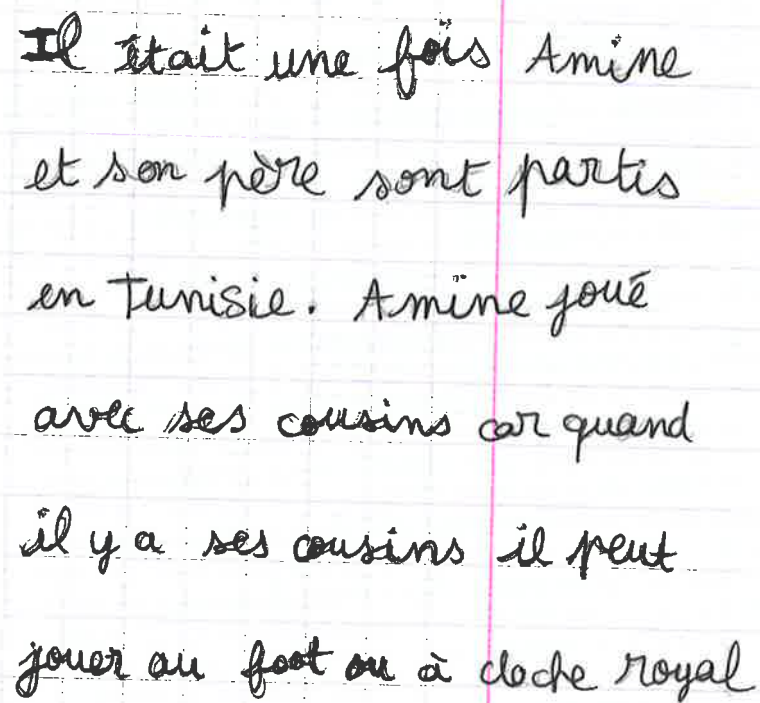 Il était une fois Amine
et son père sont partis
en Tunisie. Amine joué
avec ses cousins car quand
il y a ses cousins il peut
jouer au foot ou à cloche royal